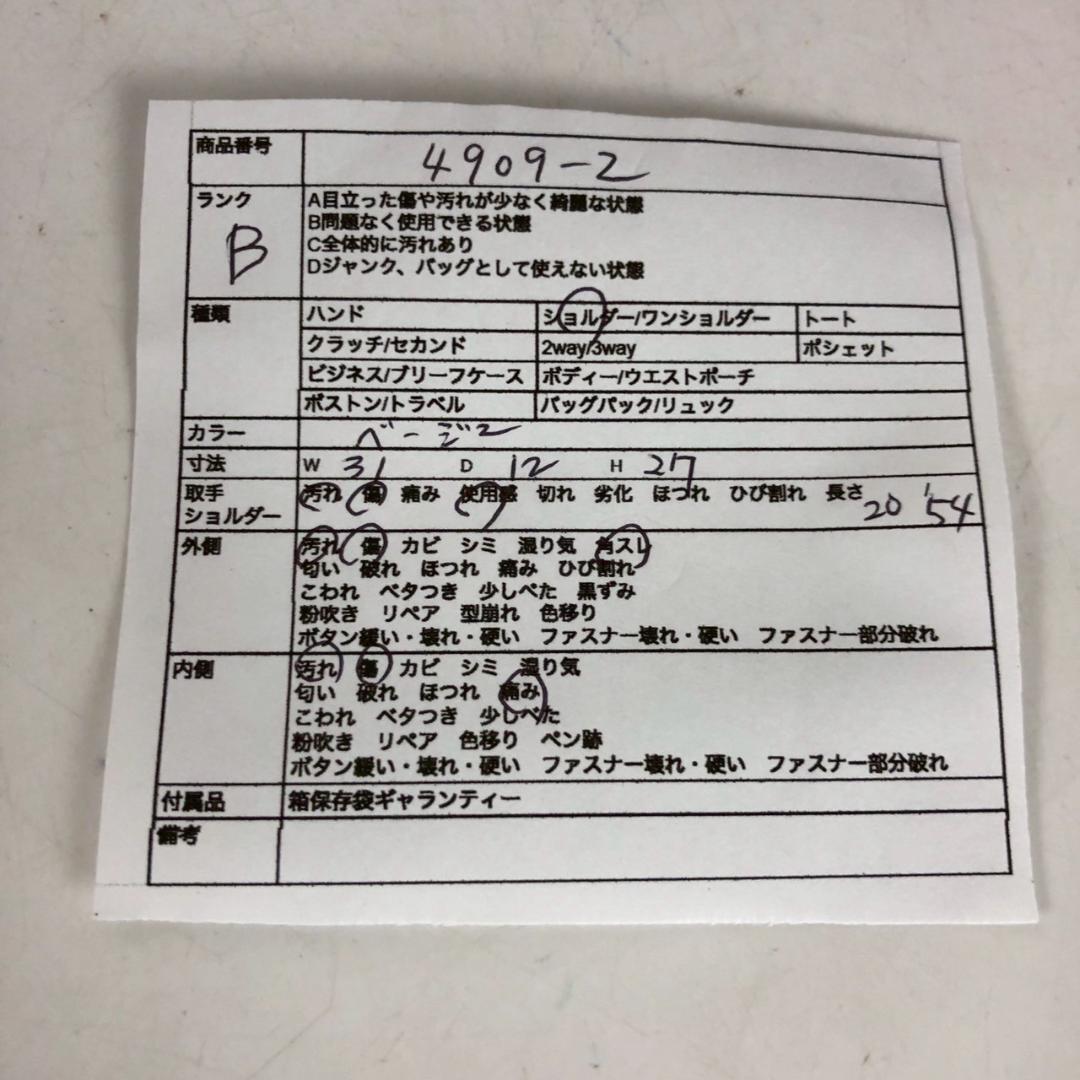 商品番号 4909-2
ランク B
A目立った傷や汚れが少なく綺麗な状態
B問題なく使用できる状態
C全体的に汚れあり
Dジャンク、バッグとして使えない状態
種類 ハンド ショルダー/ワンショルダー トート
クラッチ/セカンド 2way/3way ポシェット
ビジネス/ブリーフケース ボディー/ウエストポーチ
ボストン/トラベル バッグパック/リュック
カラー ベージュ
寸法 W 31 D 12 H 27
取手 汚れ 傷 痛み 使用感 切れ 劣化 ほつれ ひび割れ 長さ 20 54
ショルダー
外側 汚れ 傷 カビ シミ 湿り気 角スレ
匂い 破れ ほつれ 痛み ひび割れ
こわれ ベタつき 少しべた 黒ずみ
粉吹き リペア 型崩れ 色移り
ボタン緩い・壊れ・硬い ファスナー壊れ・硬い ファスナー部分破れ
内側 汚れ 傷 カビ シミ 湿り気
匂い 破れ ほつれ 痛み
こわれ ベタつき 少しべた
粉吹き リペア 色移り ペン跡
ボタン緩い・壊れ・硬い ファスナー壊れ・硬い ファスナー部分破れ
付属品 箱保存袋ギャランティー
備考